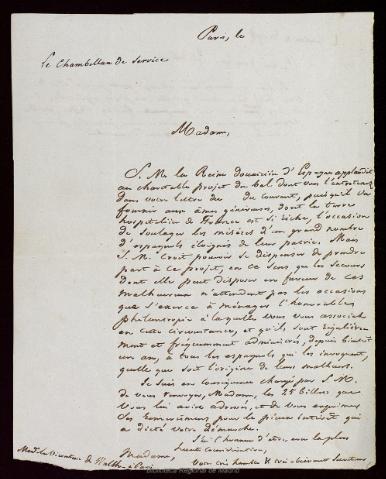 Paris, le
Le Chambellan de Service
Madame,
S. M. la Reine douairière d'Espagne applaudit
au charitable projet du bal dont vous l'entretenez
dans votre lettre du du courant, puisqu'il va
fournir aux âmes généreuses, dont la terre
hospitalière de France est si riche, l'occasion
de soulager les misères d'un grand nombre
d'espagnols éloignés de leur patrie. Mais
S. M. croit pouvoir se dispenser de prendre
part à ce projet, en ce sens que les secours
dont elle peut disposer en faveur de ces
malheureux n'attendent pas les occasions
que s'exerce à ménager l'honorable
philantropie à laquelle vous vous associez
en cette circonstance, et qu'ils sont régulière-
ment et fréquemment administrés, depuis bientôt
un an, à tous les espagnols qui les invoquent,
quelle que soit l'origine de leurs malheurs.
Je suis en conséquence chargé par S. M.
de vous renvoyer, Madame, les 25 billets que
vous lui aviez adressés, et de vous exprimer
ses remerciemens pour le pieux intérêt qui
a dicté votre démarche.
J'ai l'honneur d'être, avec la plus
haute considération,
Madame,
Votre très humble & très obéissant Serviteur
Made. la Vicomtesse de à Paris
Biblioteca Regional de Madrid